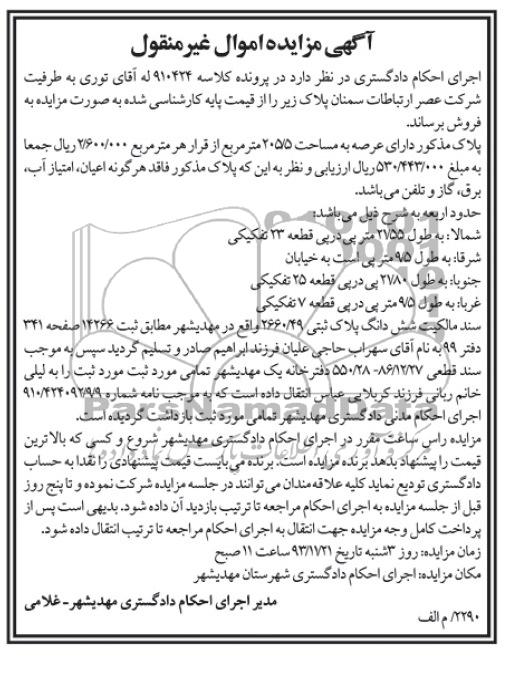 آگهی مزایده اموال غیرمنقول
اجرای احکام دادگستری در نظر دارد در پرونده کلاسه ۹۱۰۴۲۴ له آقای توری به طرفیت
شرکت عصر ارتباطات سمنان پلاک زیر را از قیمت پایه کارشناسی شده به صورت مزایده به
فروش برساند.
پلاک مذکور دارای عرصه به مساحت ۲۰۵/۵ مترمربع از قرار هر مترمربع ۲/۶۰۰/۰۰۰ ریال جمعا
به مبلغ ۵۳۰/۴۴۳/۰۰۰ ریال ارزیابی و نظر به این که پلاک مذکور فاقد هرگونه اعیان، امتیاز آب،
برق، گاز و تلفن می‌باشد.
حدود اربعه به شرح ذیل می‌باشد:
شمالا: به طول ۲۱/۵۵ متر پی‌درپی قطعه ۲۳ تفکیکی
شرقا: به طول ۹/۵ متر پی است به خیابان
جنوبا: به طول ۲۱/۸۰ پی‌درپی قطعه ۲۵ تفکیکی
غربا: به طول ۹/۵ متر پی‌درپی قطعه ۷ تفکیکی
سند مالکیت شش دانگ پلاک ثبتی ۲۶۶۰/۴۹ واقع در مهدیشهر مطابق ثبت ۱۴۲۶۶ صفحه ۳۴۱
دفتر ۹۹ به نام آقای سهراب حاجی علیان فرزند ابراهیم صادر و تسلیم گردید سپس به موجب
سند قطعی ۸۶/۱۲/۲۷- ۵۵۰/۲۸ دفترخانه یک مهدیشهر تمامی مورد ثبت مورد ثبت را به لیلی
خانم ربانی فرزند کربلایی عباس انتقال داده است که به موجب نامه شماره ۹۱۰/۴۲۴۰۹۲/۹/۹
اجرای احکام مدنی دادگستری مهدیشهر تمامی مورد ثبت بازداشت گردیده است.
مزایده راس ساعت مقرر در اجرای احکام دادگستری مهدیشهر شروع و کسی که بالاترین
قیمت را پیشنهاد بدهد برنده مزایده است. برنده می‌بایست قیمت پیشنهادی را نقدا به حساب
دادگستری تودیع نماید کلیه علاقه‌مندان می‌توانند در جلسه مزایده شرکت نموده و تا پنج روز
قبل از جلسه مزایده به اجرای احکام مراجعه تا ترتیب بازدید آن داده شود. بدیهی است پس از
پرداخت کامل وجه مزایده جهت انتقال به اجرای احکام مراجعه تا ترتیب انتقال داده شود.
زمان مزایده: روز ۳شنبه تاریخ ۹۳/۱/۲۱ ساعت ۱۱ صبح
مکان مزایده: اجرای احکام دادگستری شهرستان مهدیشهر
مدیر اجرای احکام دادگستری مهدیشهر- غلامی
۲۲۹۰/ م الف
ParsNamadData